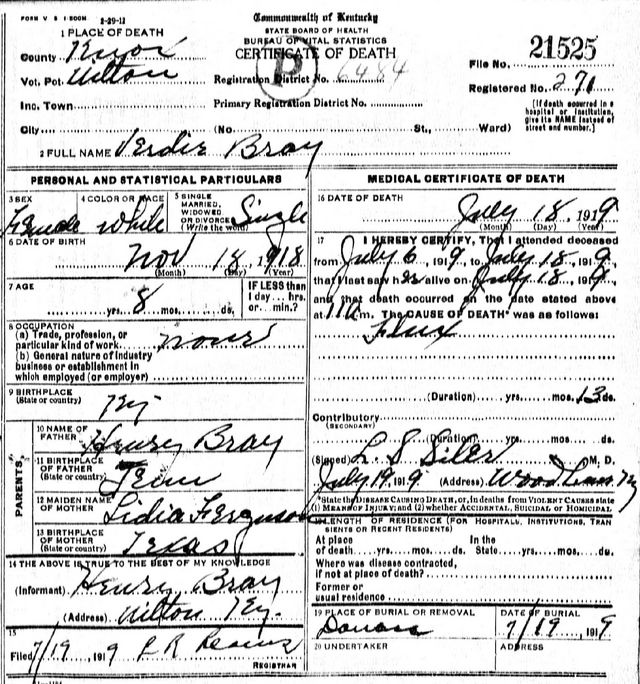 FORM V. S. 1-500M 2-29-12
Commonwealth of Kentucky
STATE BOARD OF HEALTH
BUREAU OF VITAL STATISTICS
CERTIFICATE OF DEATH
1 PLACE OF DEATH
County Knox
Vot. Pct. Wilton
Inc. Town
City (No. St., Ward)
Registration District No. 6484
Primary Registration District No.
File No. 21525
Registered No. 271
(If death occurred in a hospital or institution, give its NAME instead of street and number.)
P
2 FULL NAME Verdie Bray
PERSONAL AND STATISTICAL PARTICULARS
3 SEX Female
4 COLOR OR RACE White
5 SINGLE, MARRIED, WIDOWED OR DIVORCED (Write the word) Single
6 DATE OF BIRTH
Nov 18 1918
(Month) (Day) (Year)
7 AGE
yrs. 8 mos. ds.
IF LESS than 1 day... hrs. or min.?
8 OCCUPATION
(a) Trade, profession, or particular kind of work none
(b) General nature of industry business or establishment in which employed (or employer)
9 BIRTHPLACE
(State or country) Ky
PARENTS
10 NAME OF FATHER Henry Bray
11 BIRTHPLACE OF FATHER (State or country) Tenn
12 MAIDEN NAME OF MOTHER Lidia Ferguson
13 BIRTHPLACE OF MOTHER (State or country) Texas
14 THE ABOVE IS TRUE TO THE BEST OF MY KNOWLEDGE
(Informant) Henry Bray
(Address) Wilton Ky.
15
Filed 7/19 1919
REGISTRAR
MEDICAL CERTIFICATE OF DEATH
16 DATE OF DEATH
July 18, 1919
(Month) (Day) (Year)
17 I HEREBY CERTIFY, That I attended deceased
from July 6, 1919, to July 18, 1919,
that I last saw her alive on July 18, 1919,
and that death occurred on the date stated above
at 11 a m. The CAUSE OF DEATH* was as follows:
Flux
(Duration) yrs. mos. 13 ds.
Contributory
(SECONDARY)
(Duration) yrs. mos. ds.
(Signed) L. S. Siler M. D.
July 19, 1919 (Address)
*State the DISEASE CAUSING DEATH, or, in deaths from VIOLENT CAUSES state
(1) MEANS OF INJURY; and (2) whether ACCIDENTAL, SUICIDAL or HOMICIDAL
18 LENGTH OF RESIDENCE (FOR HOSPITALS, INSTITUTIONS, TRANSIENTS OR RECENT RESIDENTS)
At place of death yrs. mos. ds. In the State yrs. mos. ds.
Where was disease contracted,
if not at place of death?
Former or
usual residence
19 PLACE OF BURIAL OR REMOVAL
DATE OF BURIAL
7/19, 1919
20 UNDERTAKER
ADDRESS